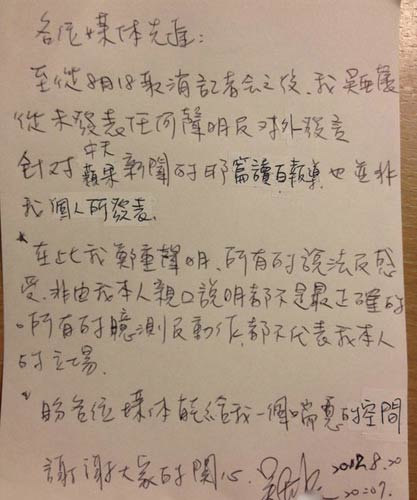 各位媒体先進:
至從8月18取消記者会之後、我吳亞馨
從未發表任何聲明及对外發言
針对 中天 蘋果 新聞的那篇讀百報導、也並非
我個人所發表.
* 在此我鄭重聲明、所有的說法及感
受、非由我本人親口說明都不是最正確的
。所有的臆測及動作、都不代表我本人
的立場.
* 盼各位媒体能給我一個喘息的空間
謝謝大家的関心.
2012.8.20
20:07.